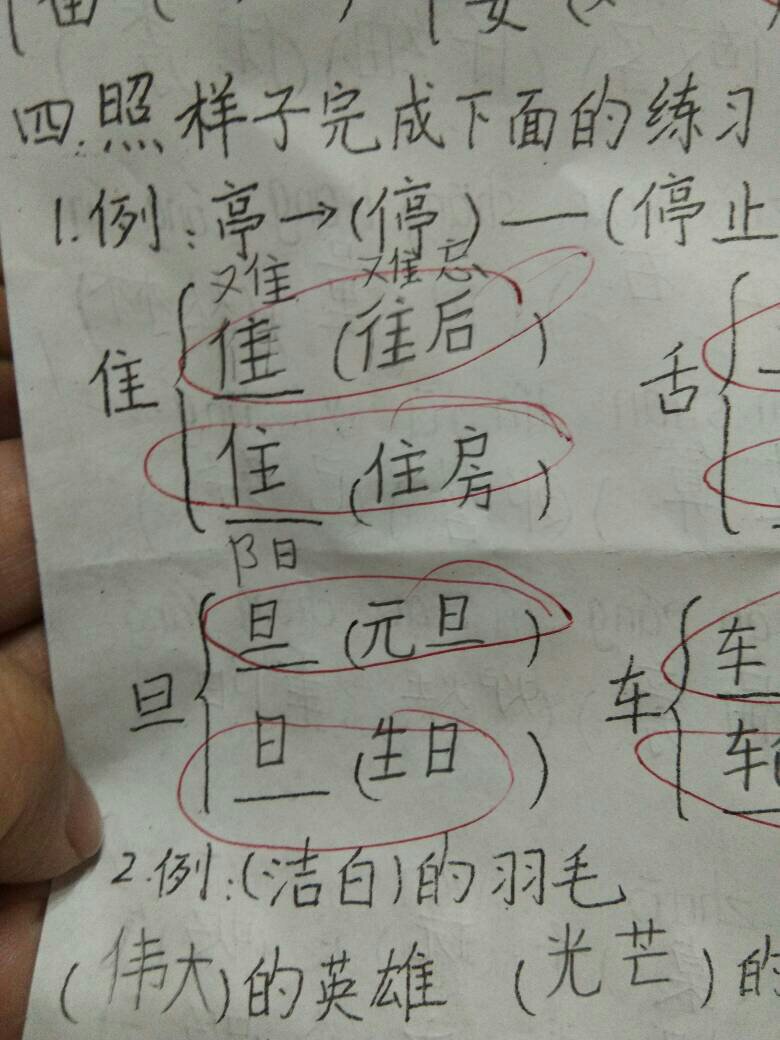 四.照样子完成下面的练习
1.例:亭→(停)—(停止
难 难忘
隹 佳 (往后)
住 (住房) 舌
阳
旦 旦 (元旦) 车 车
日 (生日) 车
2.例:(洁白)的羽毛
(伟大)的英雄 (光芒)的